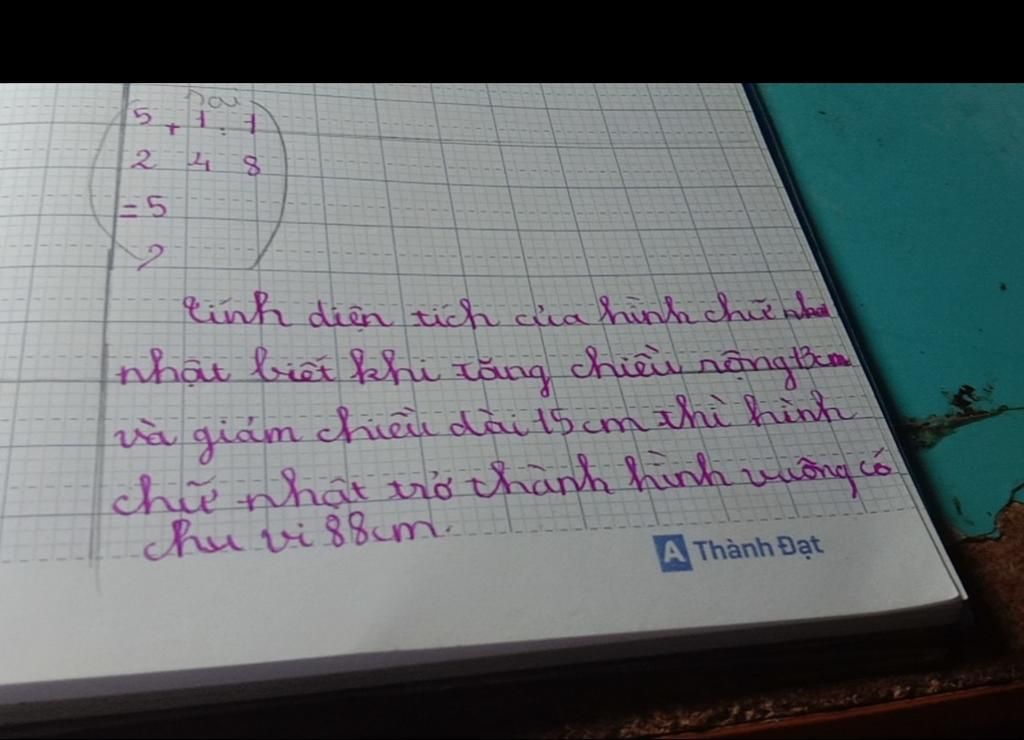 5 + 1 : 1
2 4 8
= 5
2
tính diện tích của hình chữ
nhật biết khi tăng chiều rộng 13cm
và giảm chiều dài 15cm thì hình
chữ nhật trở thành hình vuông có
chu vi 88cm.
A Thành Đạt